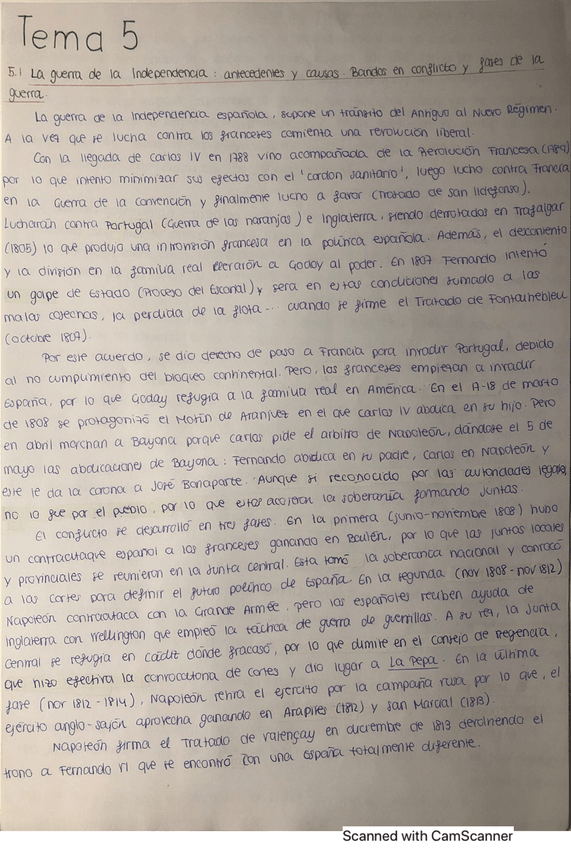 Tema 5
5.1 La guerra de la Independencia : antecedentes y causas. Bandos en conflicto y fases de la
guerra.
La guerra de la Independencia española, supone un tránsito del Antiguo al Nuevo Régimen.
A la vez que se lucha contra los franceses comienza una revolución liberal.
Con la llegada de Carlos IV en 1788 vino acompañada de la Revolución Francesa (1789)
por lo que intentó minimizar sus efectos con el 'cordon sanitario', luego lucho contra Francia
en la Guerra de la Convención y finalmente lucho a favor (Tratado de san Ildefonso).
Lucharán contra Portugal (Guerra de las naranjas) e Inglaterra, siendo derrotados en Trafalgar
(1805) lo que produjo una intromisión francesa en la política española. Además, el descontento
y la división en la familia real llevaron a Godoy al poder. En 1807 Fernando intentó
un golpe de Estado (Proceso del Escorial) y será en estas condiciones sumado a las
malas cosechas, la perdida de la flota... cuando se firme el Tratado de Fontainebleu
(octubre 1807).
Por este acuerdo, se dio derecho de paso a Francia para invadir Portugal, debido
al no cumplimiento del bloqueo continental. Pero, los franceses empiezan a invadir
España, por lo que Goday refugia a la familia real en América. En el 17-18 de marzo
de 1808 se protagonizó el Motín de Aranjuez en el que Carlos IV abdica en su hijo. Pero
en abril marchan a Bayona porque Carlos pide el arbitro de Napoleón, dándose el 5 de
mayo las abdicaciones de Bayona : Fernando abdica en su padre, Carlos en Napoleón y
este le da la corona a José Bonaparte. Aunque si reconocido por las autoridades legales,
no lo fue por el pueblo, por lo que estos acogieron la soberanía formando juntas.
El conflicto se desarrolló en tres fases. En la primera (junio-noviembre 1808) hubo
un contraataque español a los franceses ganando en Bailén, por lo que las juntas locales
y provinciales se reunieron en la Junta Central. Esta tomó la soberanía nacional y convocó
a las cortes para definir el futuro político de España. En la segunda (nov 1808 - nov 1812)
Napoleón contraataca con la Grande Armée, pero los españoles reciben ayuda de
Inglaterra con Wellington que empleó la táctica de guerra de guerrillas. A su vez, la Junta
Central se refugia en Cádiz donde fracasó, por lo que dimite en el Consejo de Regencia,
que hizo efectiva la convocatoria de cortes y dio lugar a La Pepa. En la última
fase (nov 1812 - 1814), Napoleón retira el ejercito por la campaña rusa por lo que, el
ejército anglo-sajón aprovecha ganando en Arapiles (1812) y San Marcial (1813).
Napoleón firma el Tratado de Valençay en diciembre de 1813 devolviendo el
trono a Fernando VI que se encontró con una España totalmente diferente.
Scanned with CamScanner